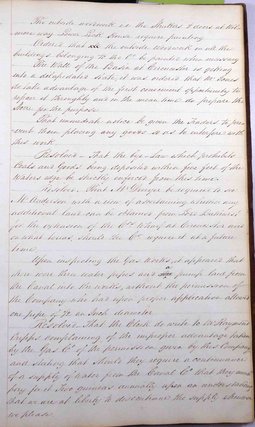 The outside woodwork i.e. the Shutters & doors at Bris-
more way Lower Lock House require painting
Ordered that the outside Woodwork in all the
buildings belonging to the Co. be painted when necessary
The Wall of the Basin at Cirencester is getting
into a dilapidated state, it was ordered that Mr
do take advantage of the first convenient opportunity to
repair it thoroughly and in the mean time do prepare the
Stone for the purpose
That immediate notice be given the Traders to pre-
vent them placing any goods so as to interfere with
this work
Resolved - That the bye-Law which prohibits
Coals and Goods being deposited within five feet of the
Waters edge be strictly enforced from this time.
Resolved. That Mr be required to see
Mr Anderson with a view of ascertaining whether any
additional land can be obtained from
for the extension of the Cos Wharf at Cirencester and
on what terms should the Co. require it at a future
time.
Upon inspecting the Gas Works, it appeared that
there were three water pipes and a pump laid from
the Canal into the works, without the permission of
the Company who had upon proper application allowed
one pipe of Inch diameter
Resolved That the Clerk do write to
Cripps complaining of the improper advantage taken
by the Gas Co. of the permission given by this Company
and stating that should they require a continuance
of a supply of water from the Canal Co. that they must
pay for it Two guineas annually upon an understanding
that we are at liberty to discontinue the supply whenever
we please